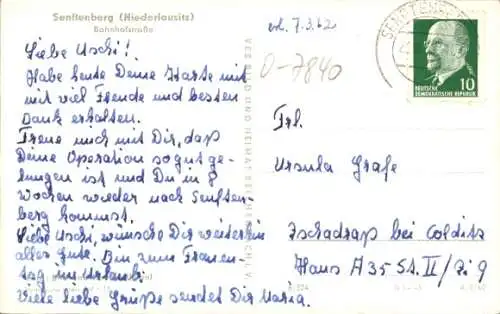 Senftenberg (Niederlausitz)
Bahnhofstraße
Liebe Uschi!
Habe heute Deine Karte mit
mit viel Freude und besten
Dank erhalten.
Freue mich mit Dir, daß
Deine Operation so gut ge-
lungen ist und Du in 8
Wochen wieder nach Senften-
berg kommst.
Liebe Uschi, wünsche Dir weiterhin
alles Gute. Bin zum Frauen-
tag im Urlaub.
Viele liebe Grüße sendet Dir Maria.
VEB BILD UND HEIMAT REICHENBACH I. V.
erh. 7.3.62
O-7840
SENFTENBERG
10
DEUTSCHE
DEMOKRATISCHE REPUBLIK
Frl.
Ursula Grafe
Zschadraß bei Colditz
Haus A 35 St. II / Zi 9